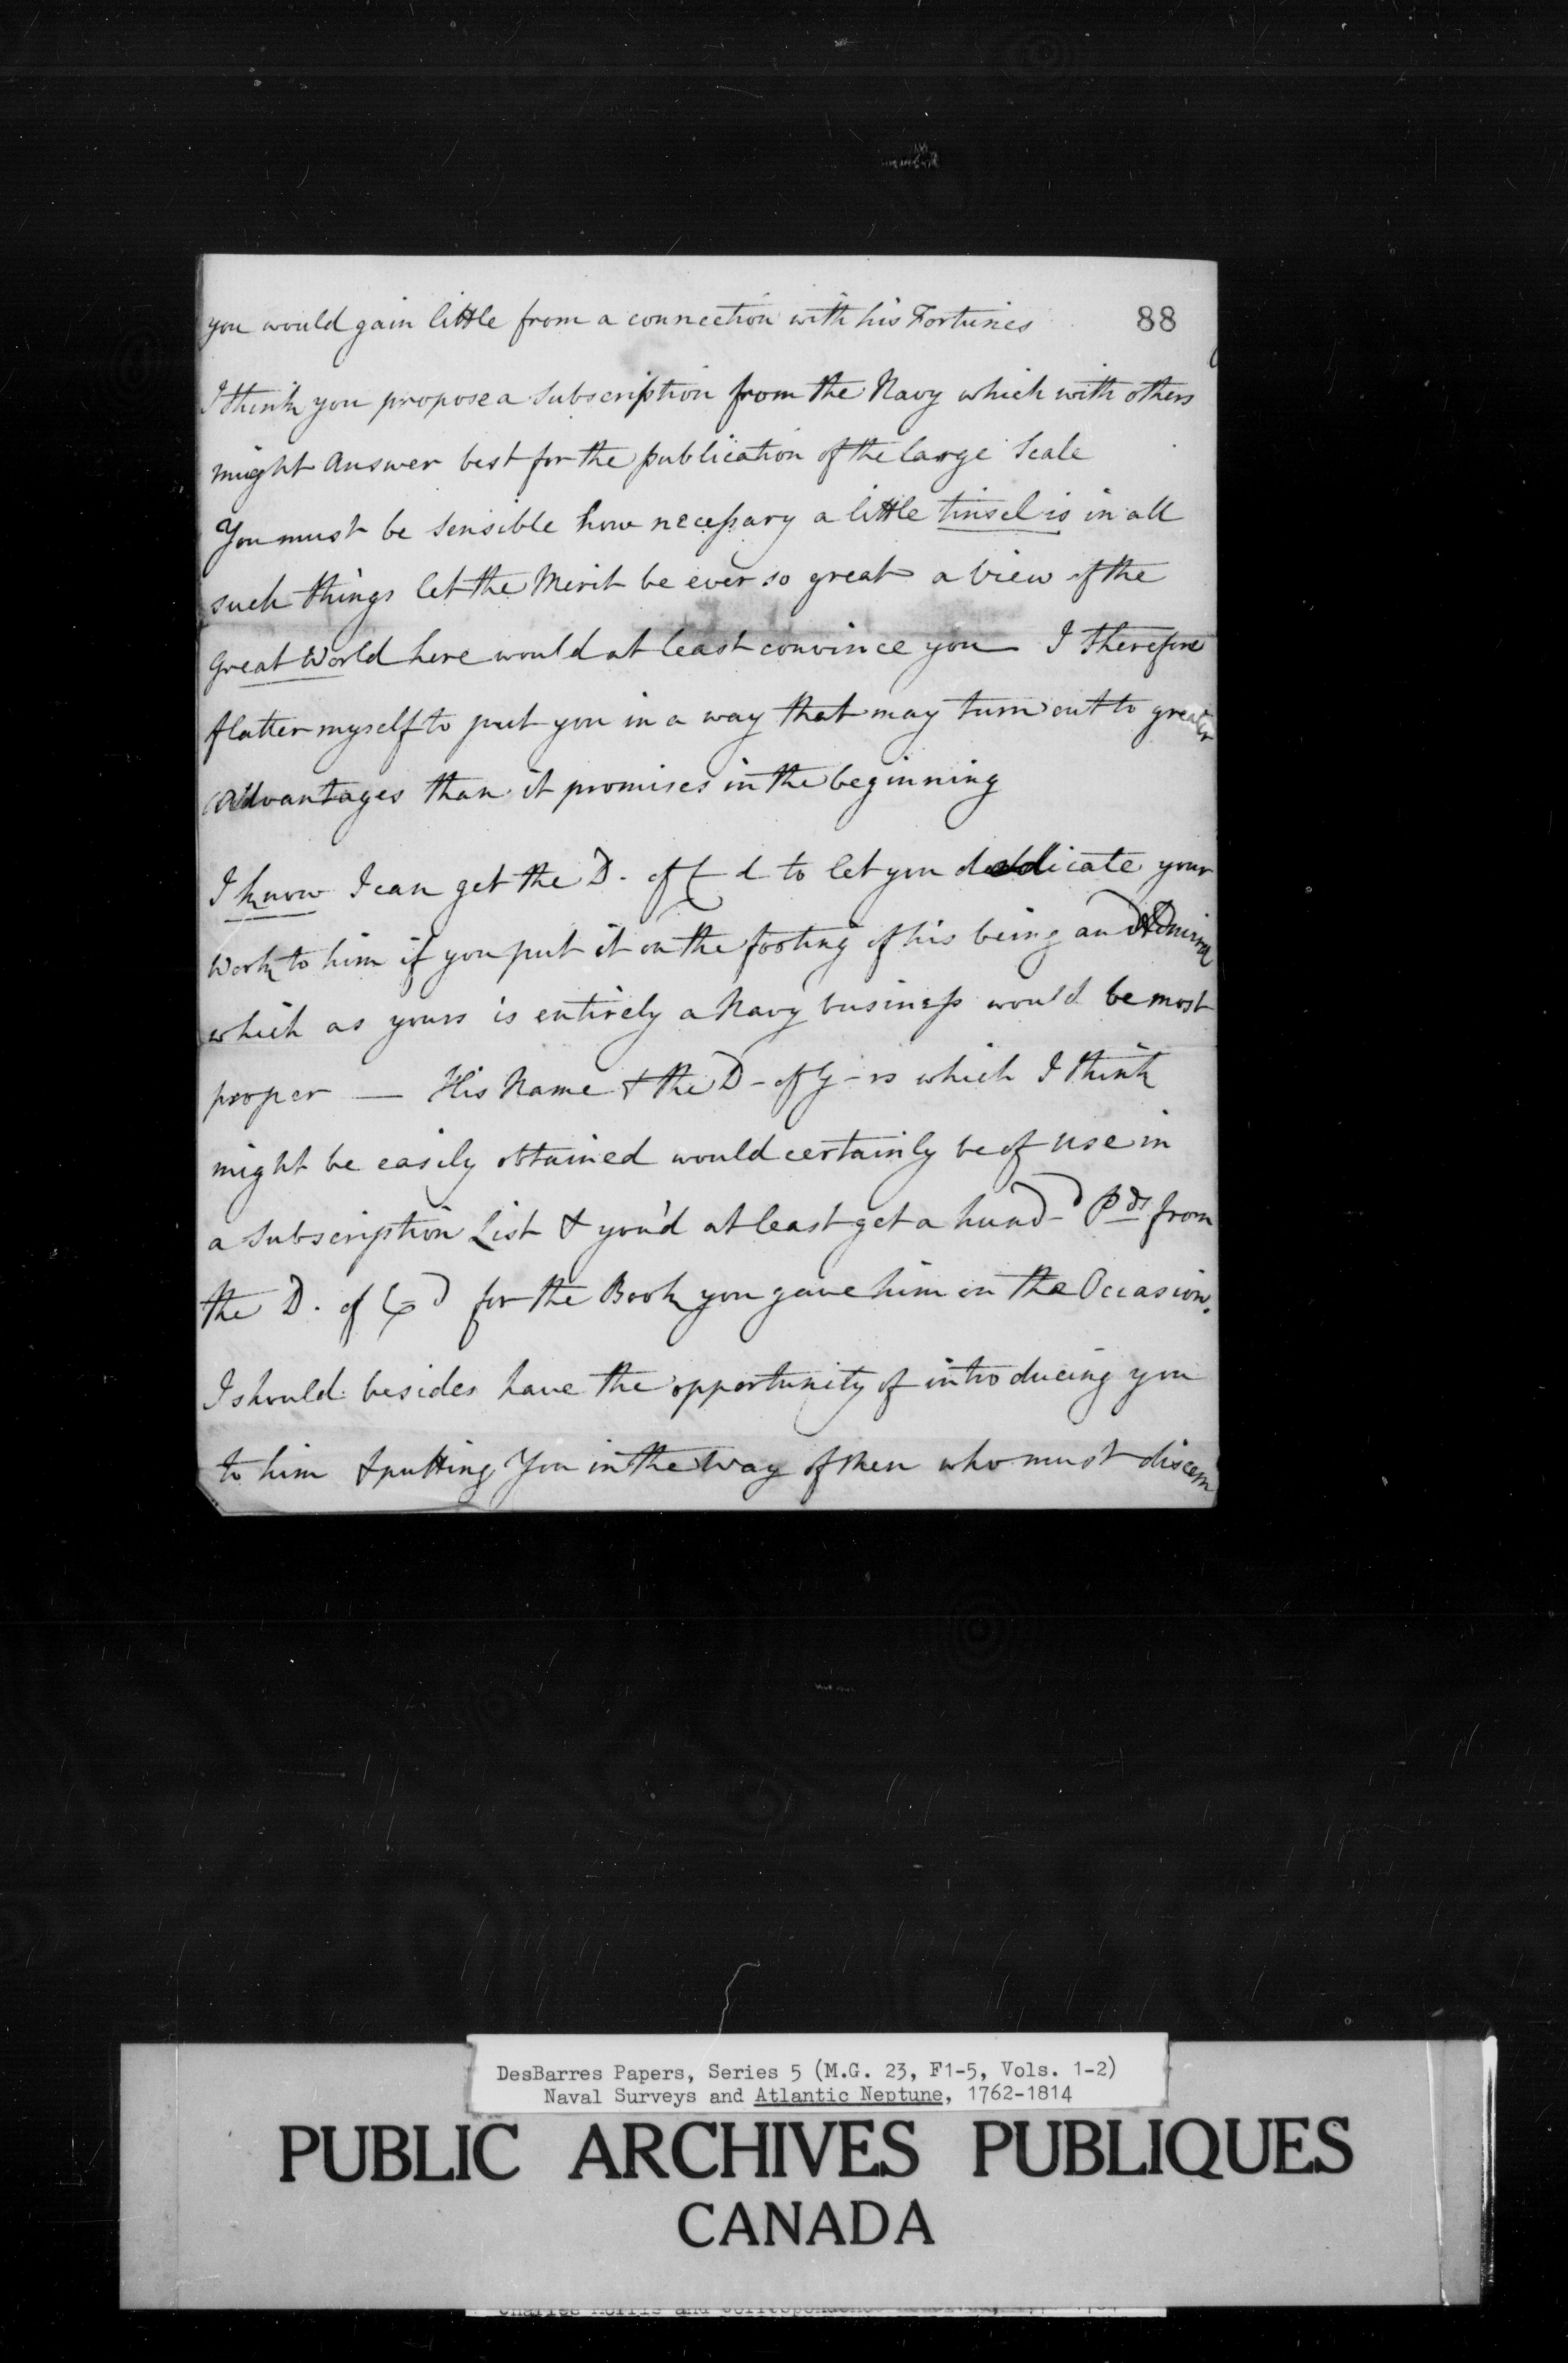 you would gain little from a connection with his Fortunes
88
I think you propose a Subscription from the Navy which with others
might answer best for the publication of the large Scale
You must be sensible how necessary a little tinsel is in all
such things let the Merit be ever so great a view of the
Great World here would at least convince you I therefore
flatter myself to put you in a way that may turn out to greater
advantages than it promises in the beginning
I know I can get the D. of C d to let you dedicate your
Work to him if you put it on the footing of his being an Admiral
which as yours is entirely a Navy business would be most
proper — His Name & the D - of G - rs which I think
might be easily obtained would certainly be of use in
a Subscription List & you'd at least get a hund- d Pds from
the D. of C d for the Book you gave him on the Occasion.
I should besides have the opportunity of introducing you
to him & putting You in the Way of Men who must discern
DesBarres Papers, Series 5 (M.G. 23, F1-5, Vols. 1-2)
Naval Surveys and Atlantic Neptune, 1762-1814
PUBLIC ARCHIVES PUBLIQUES
CANADA